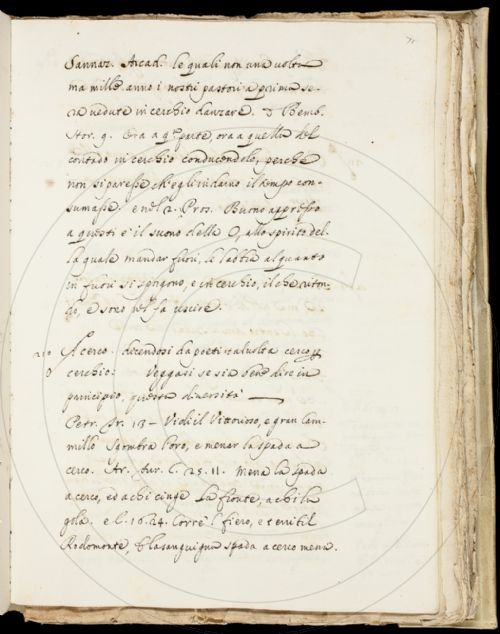 Sannaz. Arcad. le quali non una volta
ma mille anno i nostri pastori a prima se-
ra vedute in cerchio danzare. Bemb.
Stor. 9. Ora a q.ª parte, ora a quella del
contado in cerchio conducendole, perchè
non si paresse ch'egli indarno il tempo con-
sumasse. e nel 2. Pros. Buono appresso
a questi è il suono della O, allo spirito del-
la quale mandar fuori, le labbia alquanto
in fuori si sporgono, e in cerchio, il che riton-
do, e sono nel fa uscire.
A cerco. dicendosi da poeti talvolta cerco p
cerchio. Veggasi se sia bene dire in
principio, questa diversità
Petr. Tr. 13 - Vidi il Vittorioso, e gran Cam-
millo Sgombrar l'oro, e menar la spada a
cerco. Ar. Fur. C. 25. 11. Mena la spada
a cerco, ed a chi cinge La fronte, a chi la
gola. e C. 16. 24. Corre l fiero, e terribil
Rodomonte, E la sanguigna spada a cerco mena.